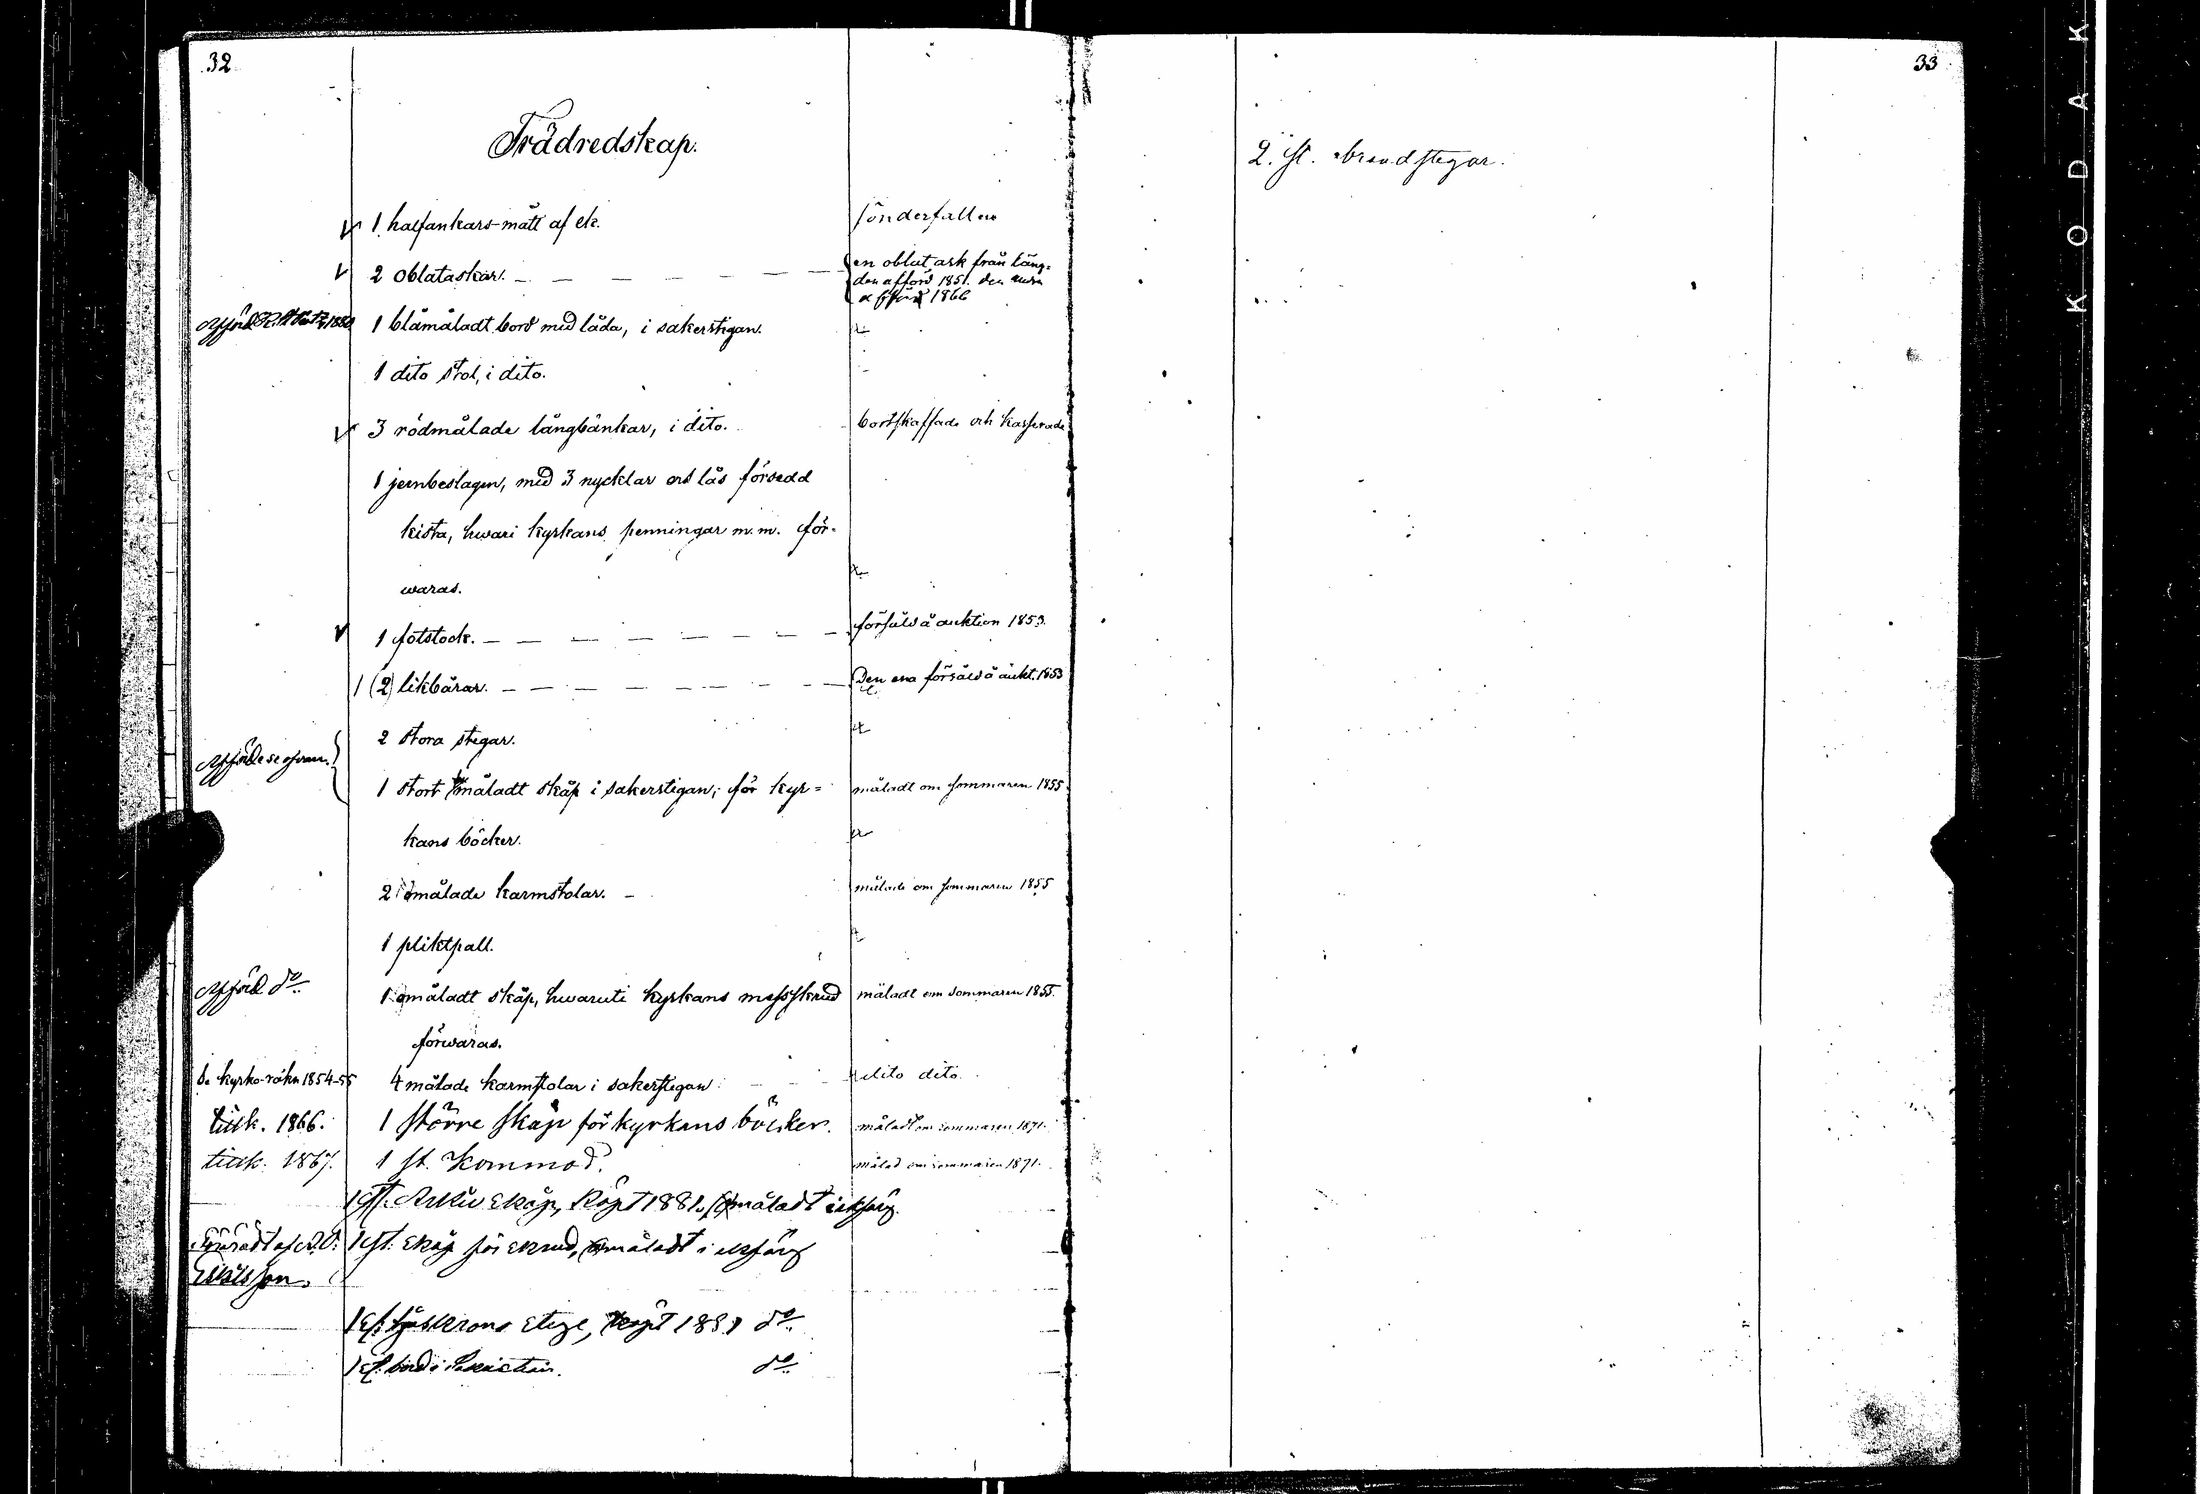 32
Trädredskap.
1 halfankars-mått af ek. sönderfallen
2 oblataskar. en oblatask från läng-
den afförd 1851. den andra
afförd 1866
Afförd 1880
1 blåmåladt bord med låda, i sakerstigan.
1 dito stol, i dito.
3 rödmålade långbänkar, i dito. bortskaffade och kasserade
1 jernbeslagen, med 3 nycklar och lås försedd
kista, hwari kyrkans penningar m.m. för-
waras.
1 fotstock. försåld å auktion 1853.
1 (2) likbårar. Den ena försåld å aukt. 1853
2 stora stegar.
Afförde se ofvan.
1 stort måladt skåp i sakerstigan, för kyr= måladt om sommaren 1855.
kans böcker.
2 omålade karmstolar. målade om sommaren 1855
1 pliktpall.
Afförd do.
1 omåladt skåp, hwaruti kyrkans messskrud måladt om sommaren 1855.
förwaras.
Se kyrko-räkn 1854-55 4 målade karmstolar i sakerstigan dito dito.
tillk. 1866. 1 större skåp för kyrkans böcker. måladt om sommaren 1871.
tillk. 1867. 1 st. Kommod. målad om sommaren 1871.
1 st. Arkiv skåp, köpt 1881, måladt i ekfärg.
1 st. skåp för skrud, måladt i ekfärg
1 st. ljuskrons stege, köpt 1881 do.
1 st. bord i do.
33
2. st. brandstegar.
KODAK